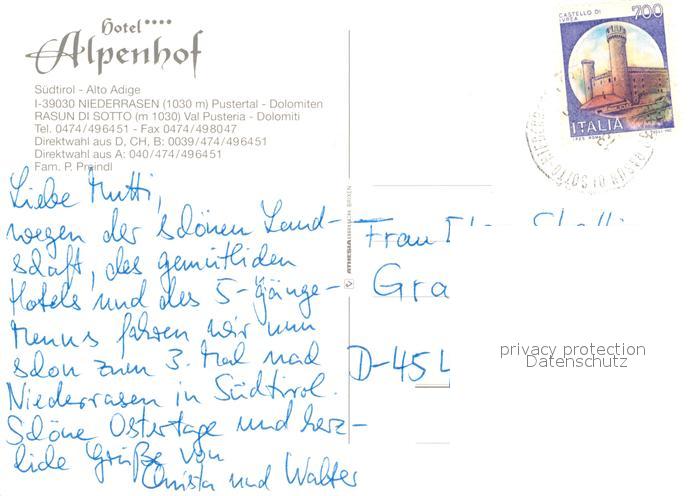 Hotel ****
Alpenhof
Südtirol - Alto Adige
I-39030 NIEDERRASEN (1030 m) Pustertal - Dolomiten
RASUN DI SOTTO (m 1030) Val Pusteria - Dolomiti
Tel. 0474/496451 - Fax 0474/498047
Direktwahl aus D, CH, B: 0039/474/496451
Direktwahl aus A: 040/474/496451
Fam. P. Preindl
Liebe Mutti,
wegen der schönen Land-
schaft, des gemütlichen
Hotels und des 5-Gänge-
Menus fahren wir nun
schon zum 3. Mal nach
Niederrasen in Südtirol.
Schöne Ostertage und herz-
liche Grüße von
Christa und Walter
ATHESIA BRIXEN
CASTELLO DI
IVREA
700
ITALIA
RASUN DI SOTTO
Frau
Gra
D-454
privacy protection
Datenschutz